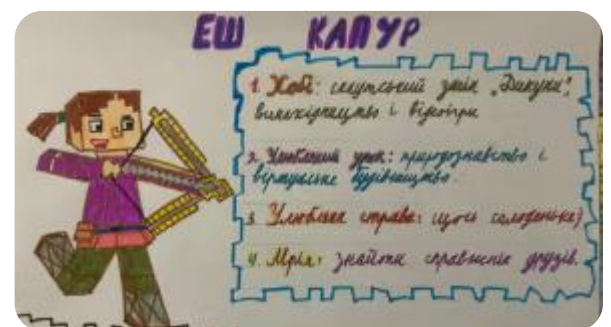 ЕШ КАПУР
1. Хобі: скаутський загін „Дикуни",
винахідництво і відеоігри
2. Улюблений урок: природознавство і
віртуальне будівництво.
3. Улюблена страва: щось солоденьке)
4. Мрія: знайти справжніх друзів.